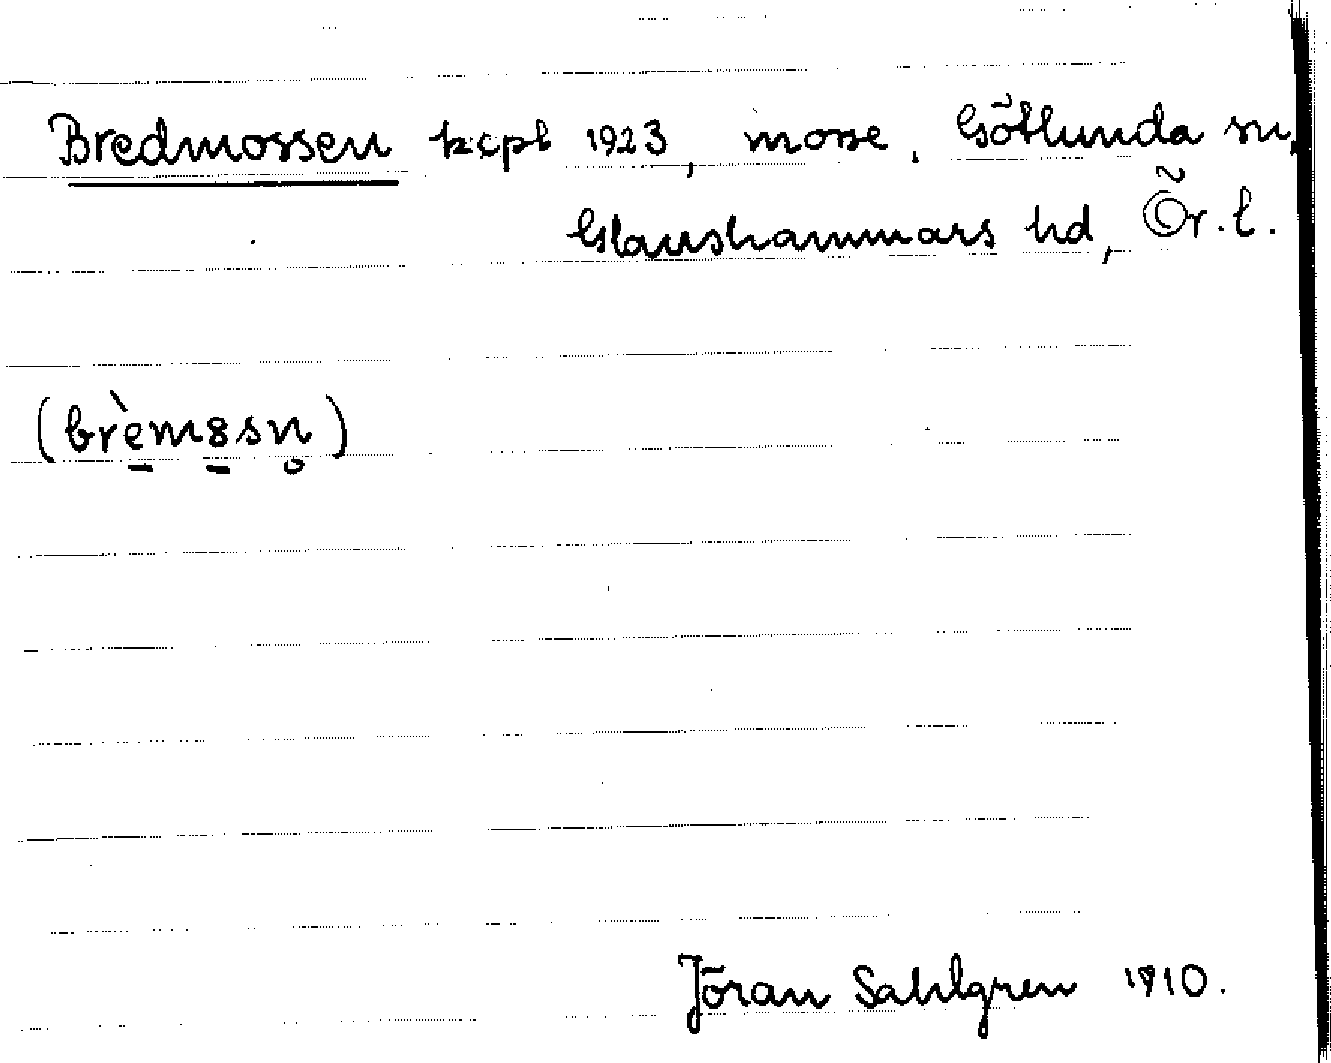 Bredmossen kcpl 1923, mosse, Götlunda sn,
Glanshammars hd, Ör. l.
(brèm8sn̥)
Jöran Sahlgren 1910.